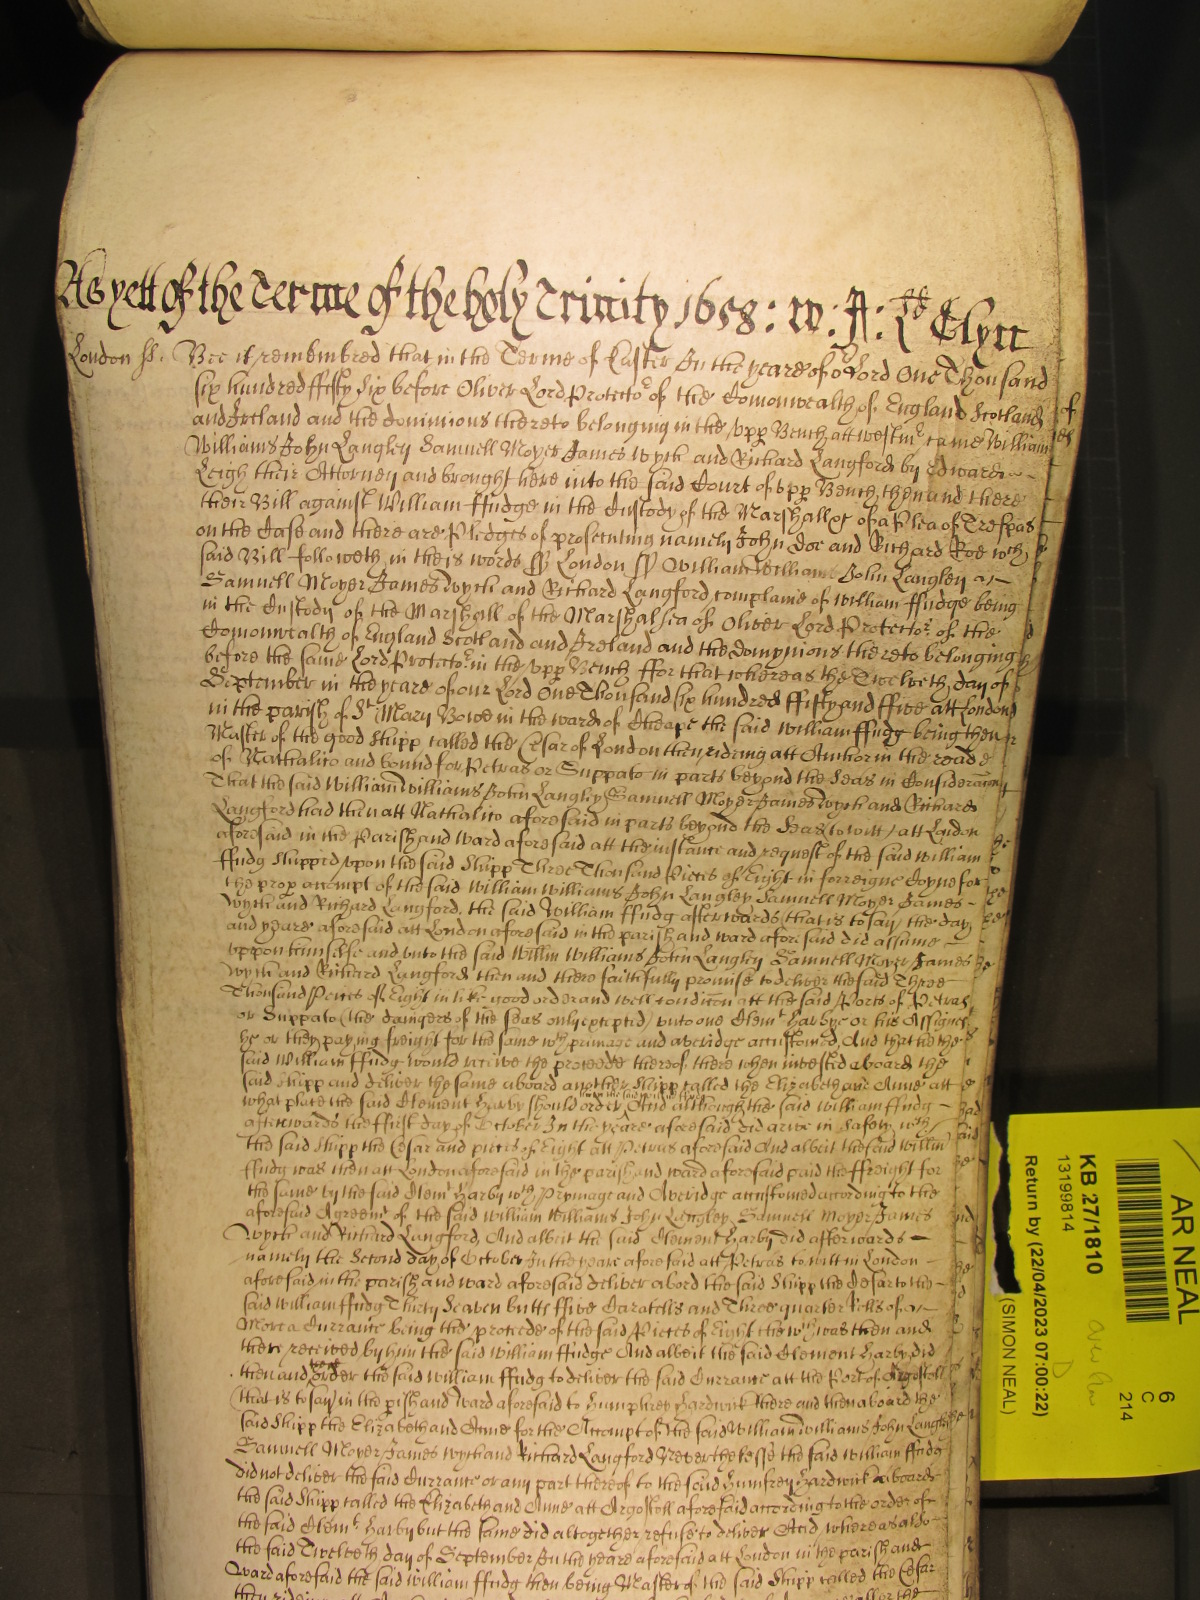 As yett of the Terme of the holy Trinity 1658: W: Clyff
London ss. Bee it remembred that in the Terme of Easter In the yeare of or Lord One Thousand
six hundred fifty six before Oliver Lord Protector of the Comonwealth of England Scotland
and Ireland and the dominions thereto belonging in the upp Bench att westmr came William
Williams John Langley Samuell Moyer James wych and Richard Langford by Edward
Leigh their Attorney and brought here into the said Court of upp Bench then and there
their Bill against William ffudge in the Custody of the Marshall &c of a Plea of Trespas
on the Case and there are Pledges of prosecuting namely John Doe and Richard Roe wch
said Bill followeth in theis words ss London ss William Williams John Langley
Samuell Moyer James wych and Richard Langford complaine of William ffudge being
in the Custody of the Marshall of the Marshalsea of Oliver Lord Protector of the
Comonwealth of England Scotland and Ireland and the Domynions thereto belonging
before the same Lord Protector in the upp Bench ffor that whereas the Twelveth day of
September in the yeare of our Lord One Thousand six hundred ffifty and ffive att London
in the parish of St Mary Bowe in the ward of Cheape the said William ffudg being then
Master of the good Shipp called the Cesar of London then rideing att Anchor in the roade
of Nathalico and bound for Petras or Suppato in parts beyond the Seas in Consideracion
That the said William Williams John Langley Samuell Moyer James wych and Richard
Langford had then att Nathalico aforesaid in parts beyond the Seas to witt att London
aforesaid in the Parish and ward aforesaid att the instance and request of the said William
ffudg shipped upon the said Shipp Three Thousand Pieces of Eight in forreigne Coyne for
the prop accompt of the said William Williams John Langley Samuell Moyer James
wych and Richard Langford, the said William ffudg afterwards that is to say the day
and yeare aforesaid att London aforesaid in the parish and ward aforesaid did assume
uppon himselfe and unto the said Willm Williams John Langley Samuell Moyer James
wych and Richard Langford then and there faithfully promise to deliver the said Three
Thousand Peices of Eight in like good order and well condicon att the said Ports of Petras
or Suppato (the dangers of the seas only excepted) unto one Clemt Harbye or his Assignes
he or they paying freight for the same wth primage and averidge accustomed, And that he the
said William ffudg would receive the proceede thereof there when invested aboard the
said Shipp and deliver the same aboard another Shipp called the Elizabeth and Anne att
what place the said Clement Harby should order And although the said William ffudg
afterwards the ffirst day of October In the yeare aforesaid did arive in Safety wth
the said Shipp the Cesar and pieces of Eight att Petras aforesaid And albeit the said Willm
ffudg was then att London aforesaid in the parish and ward aforesaid paid the ffreight for
the same by the said Clemt Harby wth Prymage and Averidge accustomed according to the
aforesaid Agreemt of the said William Williams John Langley Samuell Moyer James
wych and Richard Langford, And albeit the said Clement Harby did afterwards
namely the Second day of October In the yeare aforesaid att Petras to witt in London
aforesaid in the parish and ward aforesaid deliver abord the said Shipp the Cesar to the
said William ffudg Thirty Seaven butts ffive Caratells and Three quarter Rolls of
Morea Currance being the proceede of the said Pieces of Eight the wch was then and
there received by him the said William ffudge And albeit the said Clement Harby did
then and there order the said William ffudg to deliver the said Currance att the Port of Argostoll
(that is to say) in the pish and ward aforesaid to Humphrey Hardwick there and then aboard the
said Shipp the Elizabeth and Anne for the Accompt of the said William Williams John Langley
Samuell Moyer James wych and Richard Langford Neverthelesse the said William ffudg
did not deliver the said Currance or any part thereof to the said Humfrey Hardwick aboard
the said Shipp called the Elizabeth and Anne att Argostoll aforesaid according to the order of
the said Clemt Harby but the same did altogether refuse to deliver And whereas also
the said Twelveth day of September In the yeare aforesaid att London in the parish and
Ward aforesaid the said William ffudg then being Master of the said Shipp called the Cesar
AR NEAL
6
C
214
KB 27/1810
13199814
Return by (22/04/2023 07:00:22)
(SIMON NEAL)